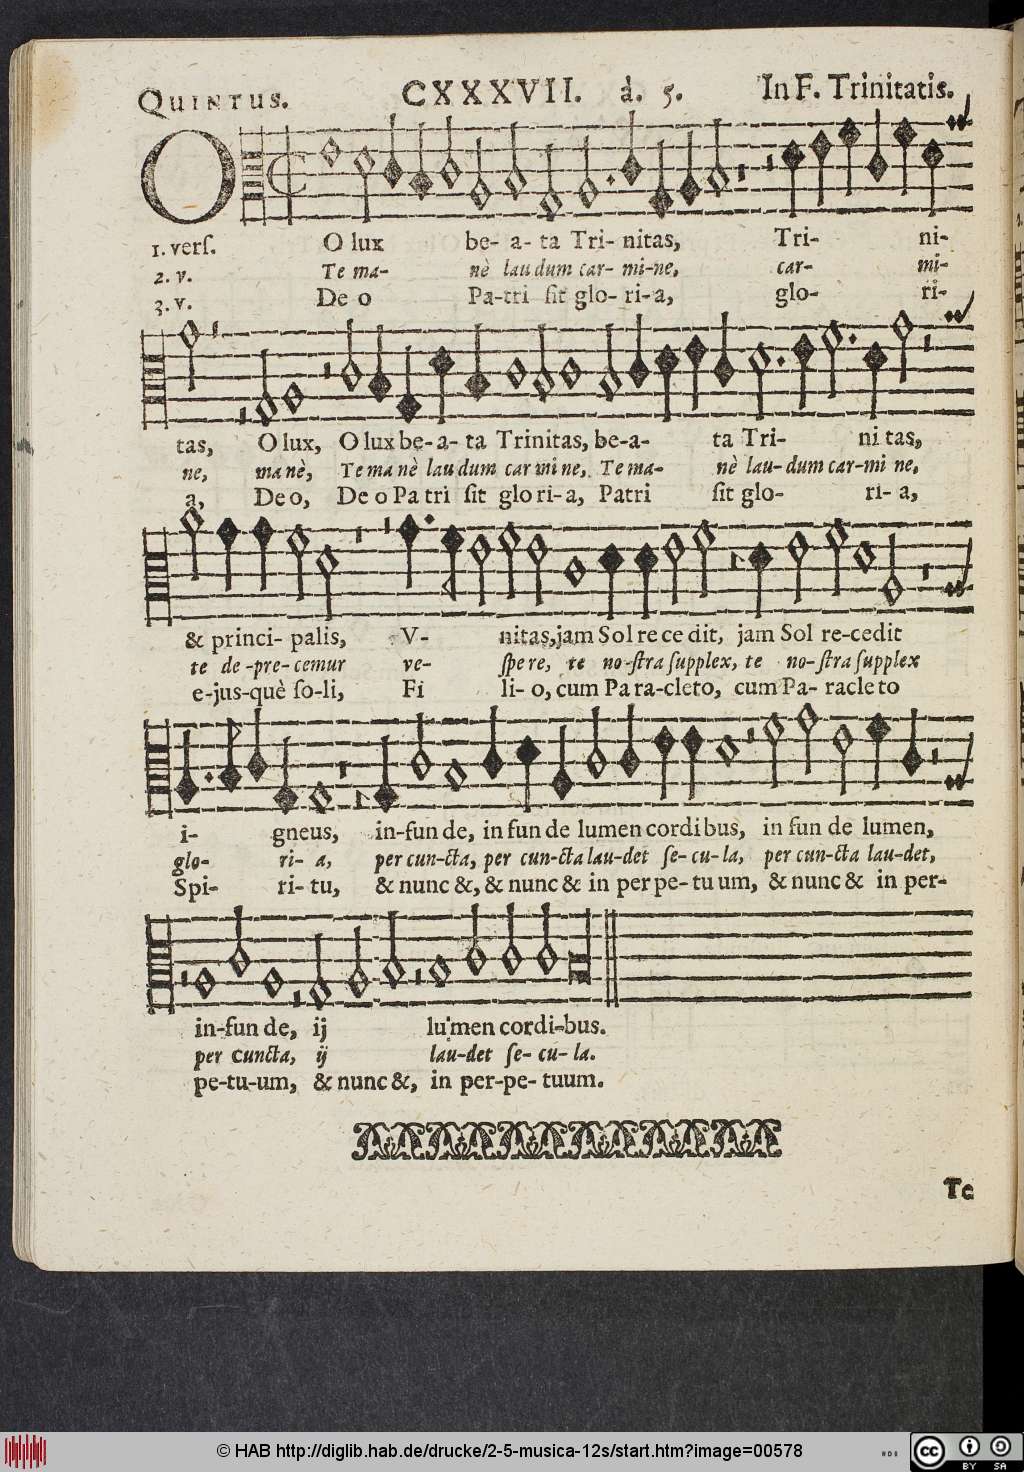 QUINTUS. CXXXVII. à. 5. In F. Trinitatis.
O
1. vers. O lux be- a- ta Tri- nitas, Tri- ni-
2. v. Te ma- nè laudum car- mi-ne, car- mi-
3. v. De o Pa-tri sit glo- ri-a, glo- ri-
tas, O lux, O lux be-a- ta Trinitas, be-a- ta Tri- ni tas,
ne, ma nè, Te ma nè lau dum car mi ne, Te ma- nè lau- dum car-mi ne,
a, De o, De o Pa tri sit glo ri-a, Patri sit glo- ri- a,
& princi- palis, V- nitas, jam Sol re ce dit, jam Sol re-cedit
te de-pre-cemur ve- spe re, te no-stra supplex, te no-stra supplex
e-jus-què so-li, Fi li- o, cum Pa ra-cleto, cum Pa- racle to
i- gneus, in-fun de, in fun de lumen cordi bus, in fun de lumen,
glo- ri- a, per cun-cta, per cun-cta lau-det se-cu-la, per cun-cta lau-det,
Spi- ri- tu, & nunc &, & nunc & in per pe- tu um, & nunc & in per-
in-fun de, ij lumen cordi-bus.
per cuncta, ij lau-det se- cu- la.
pe-tu-um, & nunc &, in per-pe- tuum.
Te
© HAB http://diglib.hab.de/drucke/2-5-musica-12s/start.htm?image=00578
cc BY SA